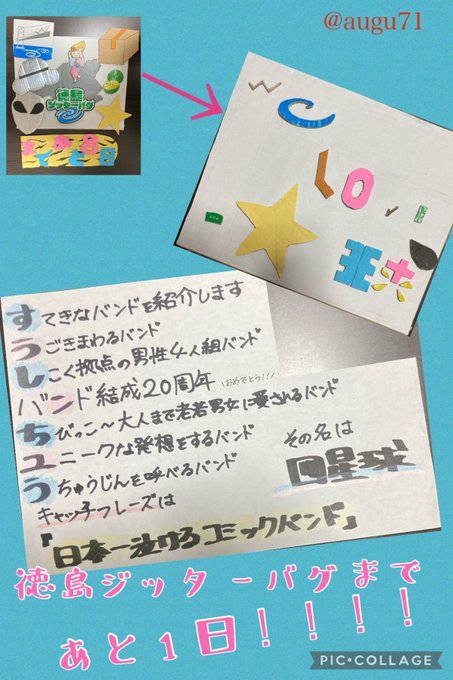 @augu71
徳島
ジッターバグ
LOVE
すてきなバンドを紹介します
うごきまわるバンド
しこく拠点の男性4人組バンド
バンド結成20周年(おめでとう!!)
ちびっこ〜大人まで老若男女に愛されるバンド
ユニークな発想をするバンド
うちゅうじんを呼べるバンド
その名は
四星球
キャッチフレーズは
『日本一泣けるコミックバンド』
徳島ジッターバグまで
あと1日!!!!
PIC•COLLAGE